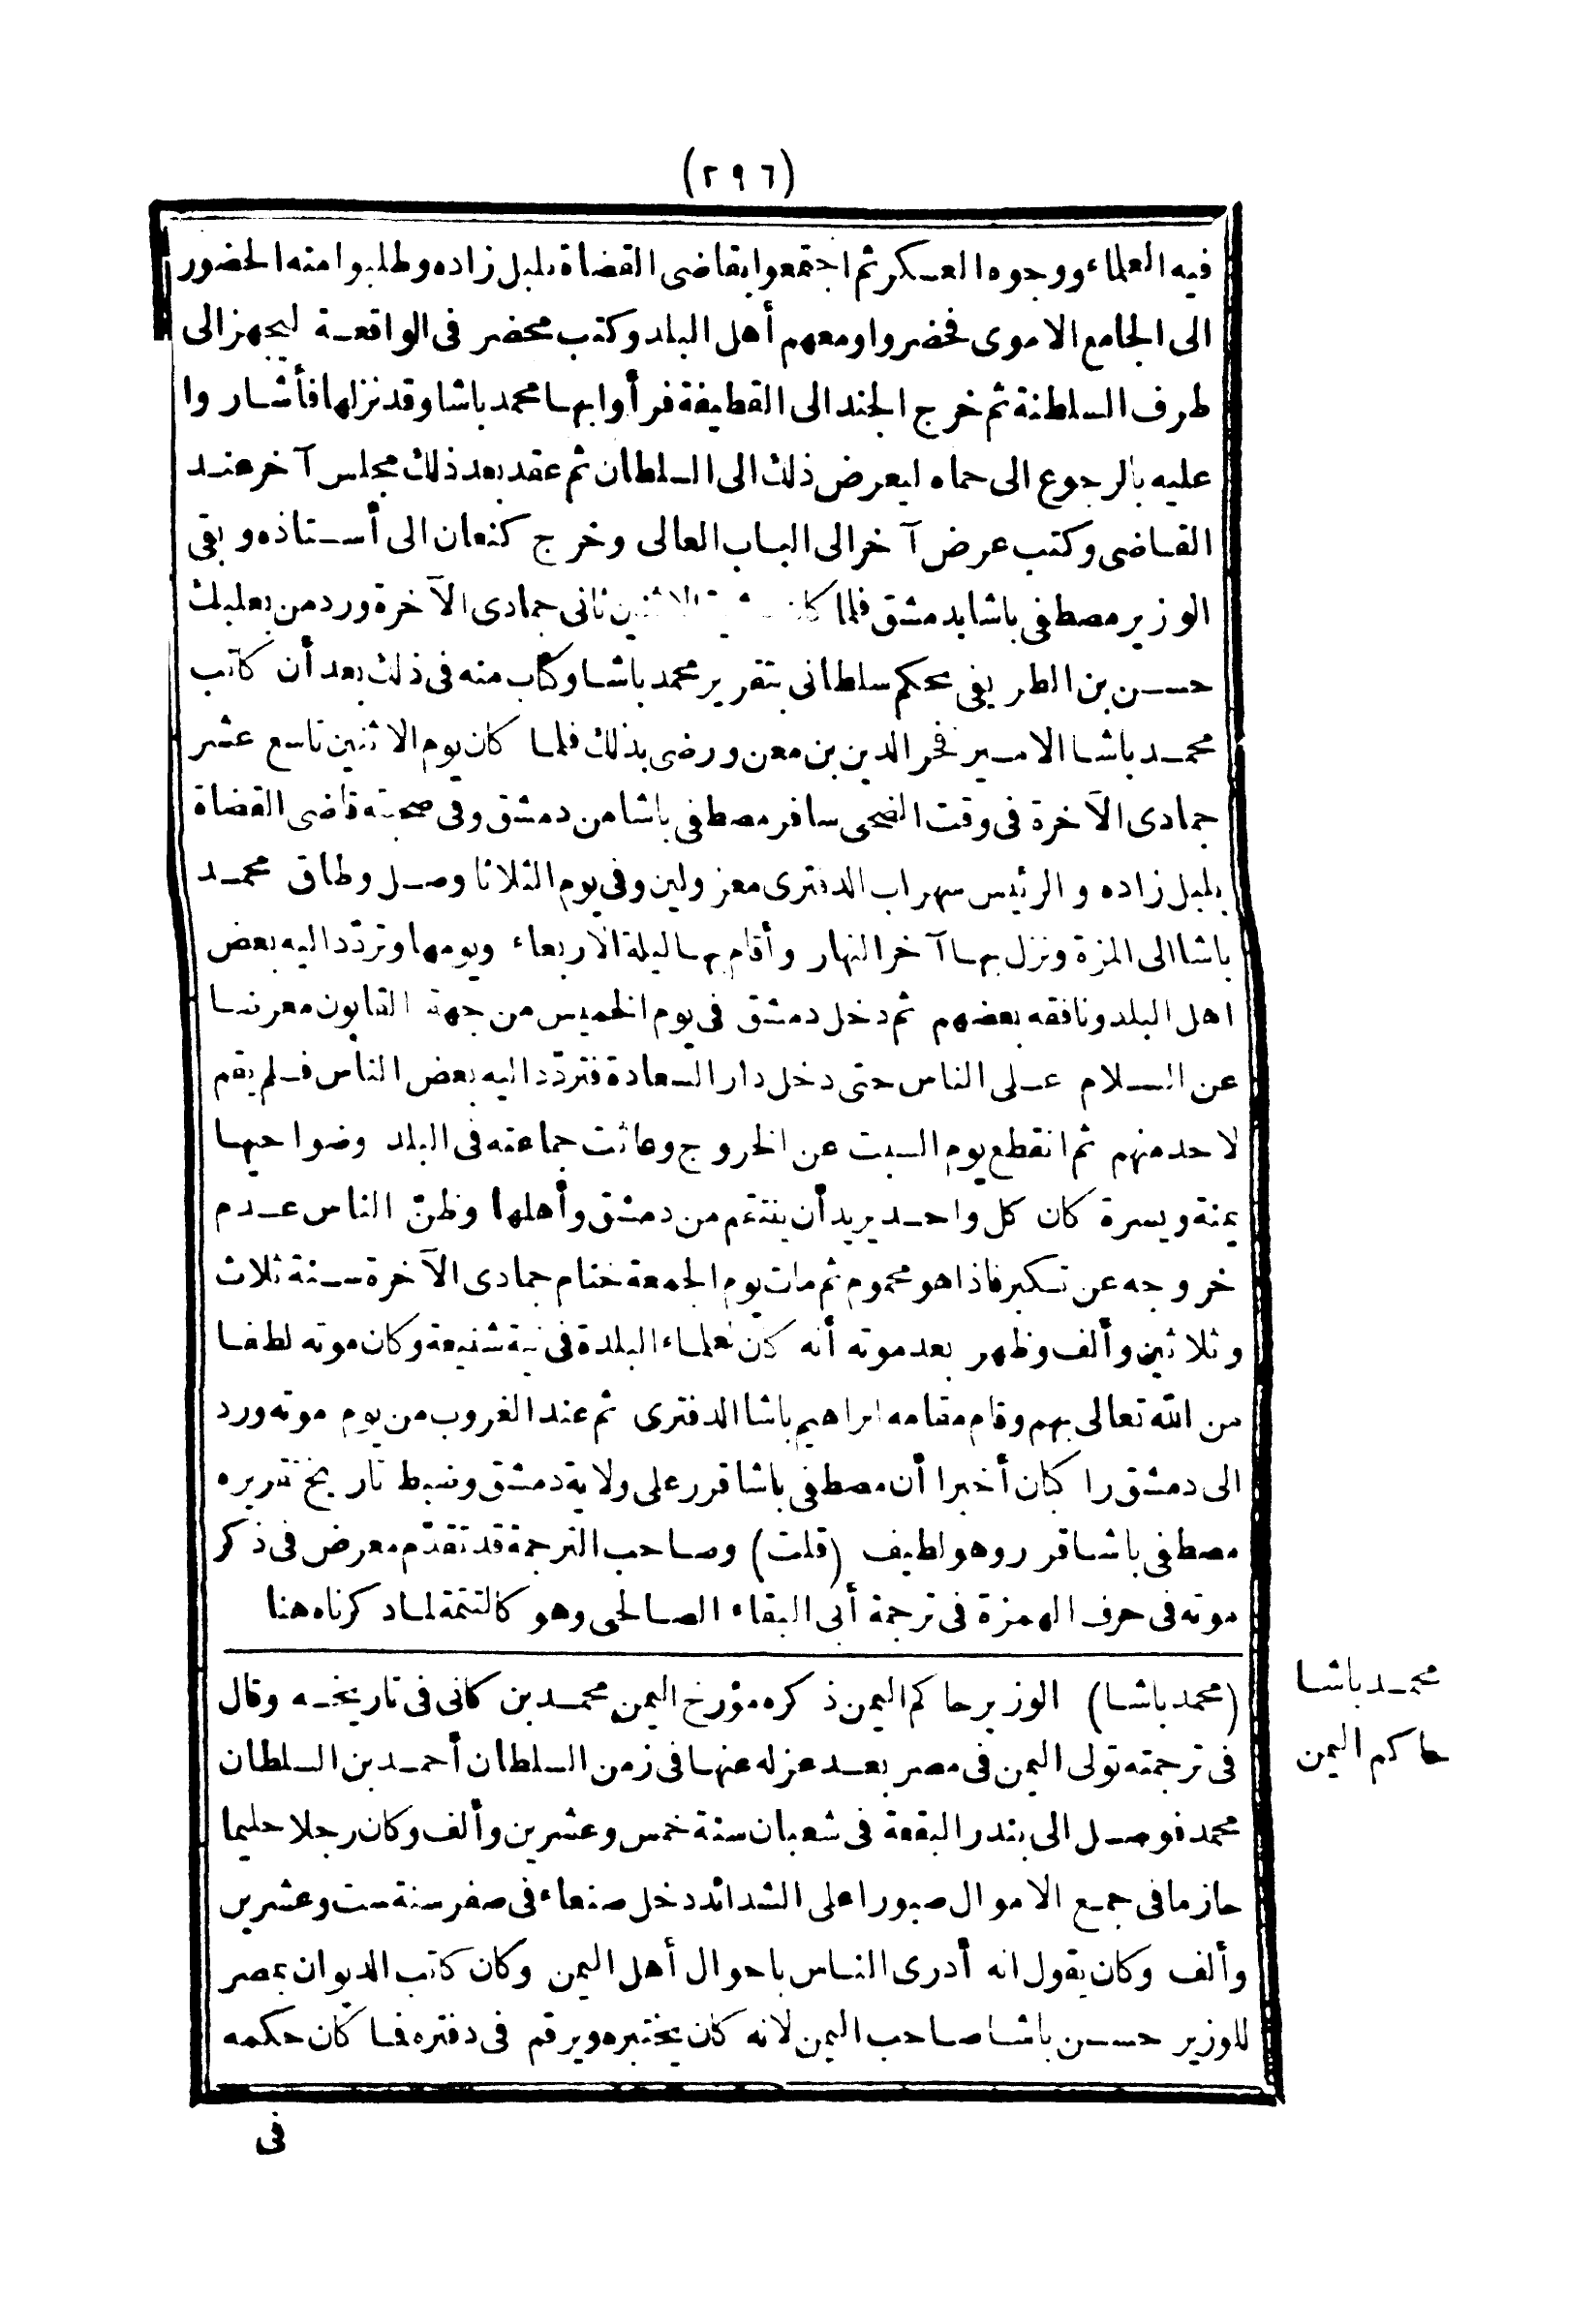 (٢٩٦)
فيه العلماء ووجوه العسكر ثم اجتمعوا بقاضى القضاة بلبل زاده وطلبوا منه الحضور
الى الجامع الاموى فحضروا ومعهم أهل البلد وكتب محضر فى الواقعة ليجهز الى
طرف السلطنة ثم خرج الجند الى القطيفة فرأوا بها محمد باشا وقد نزلها فأشاروا
عليه بالرجوع الى حماه ليعرض ذلك الى السلطان ثم عقد بعد ذلك مجلس آخر عند
القاضى وكتب عرض آخر الى الباب العالى وخرج كنعان الى أستاذه وبقى
الوزير مصطفى باشا بدمشق فلما كان عشية الاثنين ثانى جمادى الآخرة ورد من بعلبك
حسن بن الطريفى بحكم سلطانى بتقرير محمد باشا وكتاب منه فى ذلك بعد أن كاتب
محمد باشا الامير فخر الدين بن معن ورضى بذلك فلما كان يوم الاثنين تاسع عشر
جمادى الآخرة فى وقت الضحى سافر مصطفى باشا من دمشق وفى صحبته قاضى القضاة
بلبل زاده والرئيس سهراب الدفترى معزولين وفى يوم الثلاثا وصل وطاق محمد
باشا الى المزة ونزل بها آخر النهار وأقام بها ليلة الاربعاء ويومها وتردّد اليه بعض
اهل البلد ونافقه بعضهم ثم دخل دمشق فى يوم الخميس من جهة القابون معرضا
عن السلام على الناس حتى دخل دار السعادة فتردّد اليه بعض الناس فلم يقم
لاحد منهم ثم انقطع يوم السبت عن الخروج وعاثت جماعته فى البلد وضواحيها
يمنة ويسرة كان كل واحد يريد أن ينتقم من دمشق وأهلها وظنّ الناس عدم
خروجه عن تكبر فاذا هو محموم ثم مات يوم الجمعة ختام جمادى الآخرة سنة ثلاث
وثلاثين وألف وظهر بعد موته أنه كان لعلماء البلدة فى نية شنيعة وكان موته لطفا
من الله تعالى بهم وقام مقامه ابراهيم باشا الدفترى ثم عند الغروب من يوم موته ورد
الى دمشق راكبان أخبرا أن مصطفى باشا قرر على ولاية دمشق وضبط تاريخ تقريره
مصطفى باشا قرر وهو لطيف (قلت) وصاحب الترجمة قد تقدّم معرض فى ذكر
موته فى حرف الهمزة فى ترجمة أبى البقاء الصالحى وهو كالتتمة لما ذكرناه هنا
محمد باشا
حاكم اليمن
(محمد باشا) الوزير حاكم اليمن ذكره مؤرخ اليمن محمد بن كانى فى تاريخه وقال
فى ترجمته تولى اليمن فى مصر بعد عزله عنها فى زمن السلطان أحمد بن السلطان
محمد فوصل الى بندر البقعة فى شعبان سنة خمس وعشرين وألف وكان رجلا حليما
حازما فى جمع الاموال صبورا على الشدائد دخل صنعاء فى صفر سنة ست وعشرين
وألف وكان يقول انه أدرى الناس باحوال أهل اليمن وكان كاتب الديوان بمصر
للوزير حسن باشا صاحب اليمن لانه كان يختبره ويرقم فى دفتره فما كان حكمه
فى